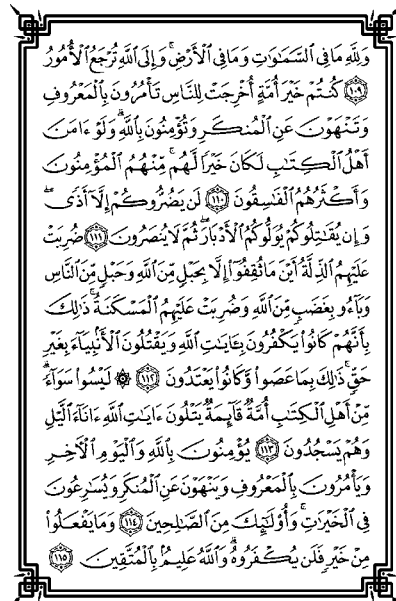 وَلِلَّهِ مَا فِي ٱلسَّمَٰوَٰتِ وَمَا فِي ٱلْأَرْضِۚ وَإِلَى ٱللَّهِ تُرْجَعُ ٱلْأُمُورُ
١٠٩ كُنتُمْ خَيْرَ أُمَّةٍ أُخْرِجَتْ لِلنَّاسِ تَأْمُرُونَ بِٱلْمَعْرُوفِ
وَتَنْهَوْنَ عَنِ ٱلْمُنكَرِ وَتُؤْمِنُونَ بِٱللَّهِۗ وَلَوْ ءَامَنَ
أَهْلُ ٱلْكِتَٰبِ لَكَانَ خَيْرًا لَّهُمۚ مِّنْهُمُ ٱلْمُؤْمِنُونَ
وَأَكْثَرُهُمُ ٱلْفَٰسِقُونَ ١١٠ لَن يَضُرُّوكُمْ إِلَّآ أَذًىۖ
وَإِن يُقَٰتِلُوكُمْ يُوَلُّوكُمُ ٱلْأَدْبَارَ ثُمَّ لَا يُنصَرُونَ ١١١ ضُرِبَتْ
عَلَيْهِمُ ٱلذِّلَّةُ أَيْنَ مَا ثُقِفُوٓا۟ إِلَّا بِحَبْلٍ مِّنَ ٱللَّهِ وَحَبْلٍ مِّنَ ٱلنَّاسِ
وَبَآءُو بِغَضَبٍ مِّنَ ٱللَّهِ وَضُرِبَتْ عَلَيْهِمُ ٱلْمَسْكَنَةُۚ ذَٰلِكَ
بِأَنَّهُمْ كَانُوا۟ يَكْفُرُونَ بِـَٔايَٰتِ ٱللَّهِ وَيَقْتُلُونَ ٱلْأَنۢبِيَآءَ بِغَيْرِ
حَقٍّۚ ذَٰلِكَ بِمَا عَصَوا۟ وَّكَانُوا۟ يَعْتَدُونَ ١١٢ ۞ لَيْسُوا۟ سَوَآءًۗ
مِّنْ أَهْلِ ٱلْكِتَٰبِ أُمَّةٌ قَآئِمَةٌ يَتْلُونَ ءَايَٰتِ ٱللَّهِ ءَانَآءَ ٱلَّيْلِ
وَهُمْ يَسْجُدُونَ ١١٣ يُؤْمِنُونَ بِٱللَّهِ وَٱلْيَوْمِ ٱلْأَخِرِ
وَيَأْمُرُونَ بِٱلْمَعْرُوفِ وَيَنْهَوْنَ عَنِ ٱلْمُنكَرِ وَيُسَٰرِعُونَ
فِي ٱلْخَيْرَٰتِۚ وَأُو۟لَٰٓئِكَ مِنَ ٱلصَّٰلِحِينَ ١١٤ وَمَا يَفْعَلُوا۟
مِنْ خَيْرٍ فَلَن يُكْفَرُوهُۗ وَٱللَّهُ عَلِيمٌۢ بِٱلْمُتَّقِينَ ١١٥